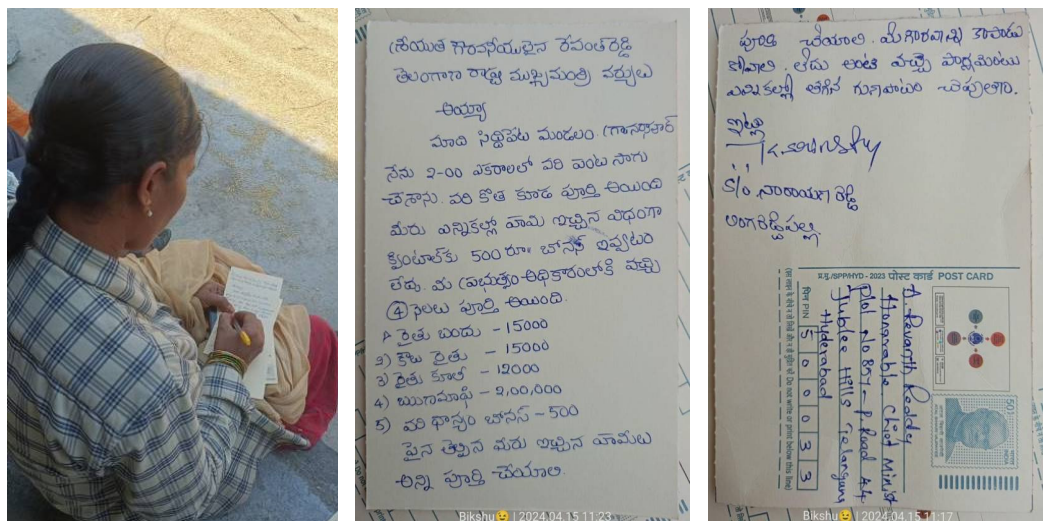 శ్రీయుత గౌరవనీయులైన రేవంత్ రెడ్డి
తెలంగాణ రాష్ట్ర ముఖ్యమంత్రి వర్యులు
అయ్యా
మాది సిద్దిపేట మండలం.
నేను 2-00 ఎకరాలలో వరి పంట సాగు
చేశాను. వరి కోత కూడ పూర్తి అయింది
మీరు ఎన్నికల్లో హామి ఇచ్చిన విధంగా
క్వింటాల్‌కు 500 రూ॥ బోనస్ ఇవ్వటం
లేదు. మీ ప్రభుత్వం అధికారంలోకి వచ్చి
④ నెలలు పూర్తి అయింది.
రైతు బందు - 15000
2) కౌలు రైతు - 15000
3) రైతు కూలీ - 12000
4) ఋణమాఫి - 2,00,000
5) వరి ధాన్యం బోనస్ - 500
పైన తెల్పిన మీరు ఇచ్చిన హామీలు
అన్ని పూర్తి చేయాలి
Bikshu😉 | 2024.04.15 11:23
పూర్తి చేయాలి. మీ గౌరవాన్ని కాపాడు
కోవాలి. లేదు అంటే వచ్చే పార్లమెంటు
ఎన్నికల్లో తగిన గుణపాఠం చెపుతాం.
ఇట్లు
S/o. నారాయణ రెడ్డి
లింగారెడ్డిపల్లి.
प्र.मु./SPP/HYD - 2023 पोस्ट कार्ड POST CARD
A. Revanth Reddy
Honarable Cheef Minist
Plot No 857 - Road 44
Jublee Hills Telangana
Hyderabad
पिन PIN 500033
Do not write or print below this line
INDIA
Bikshu😉 | 2024.04.15 11:17